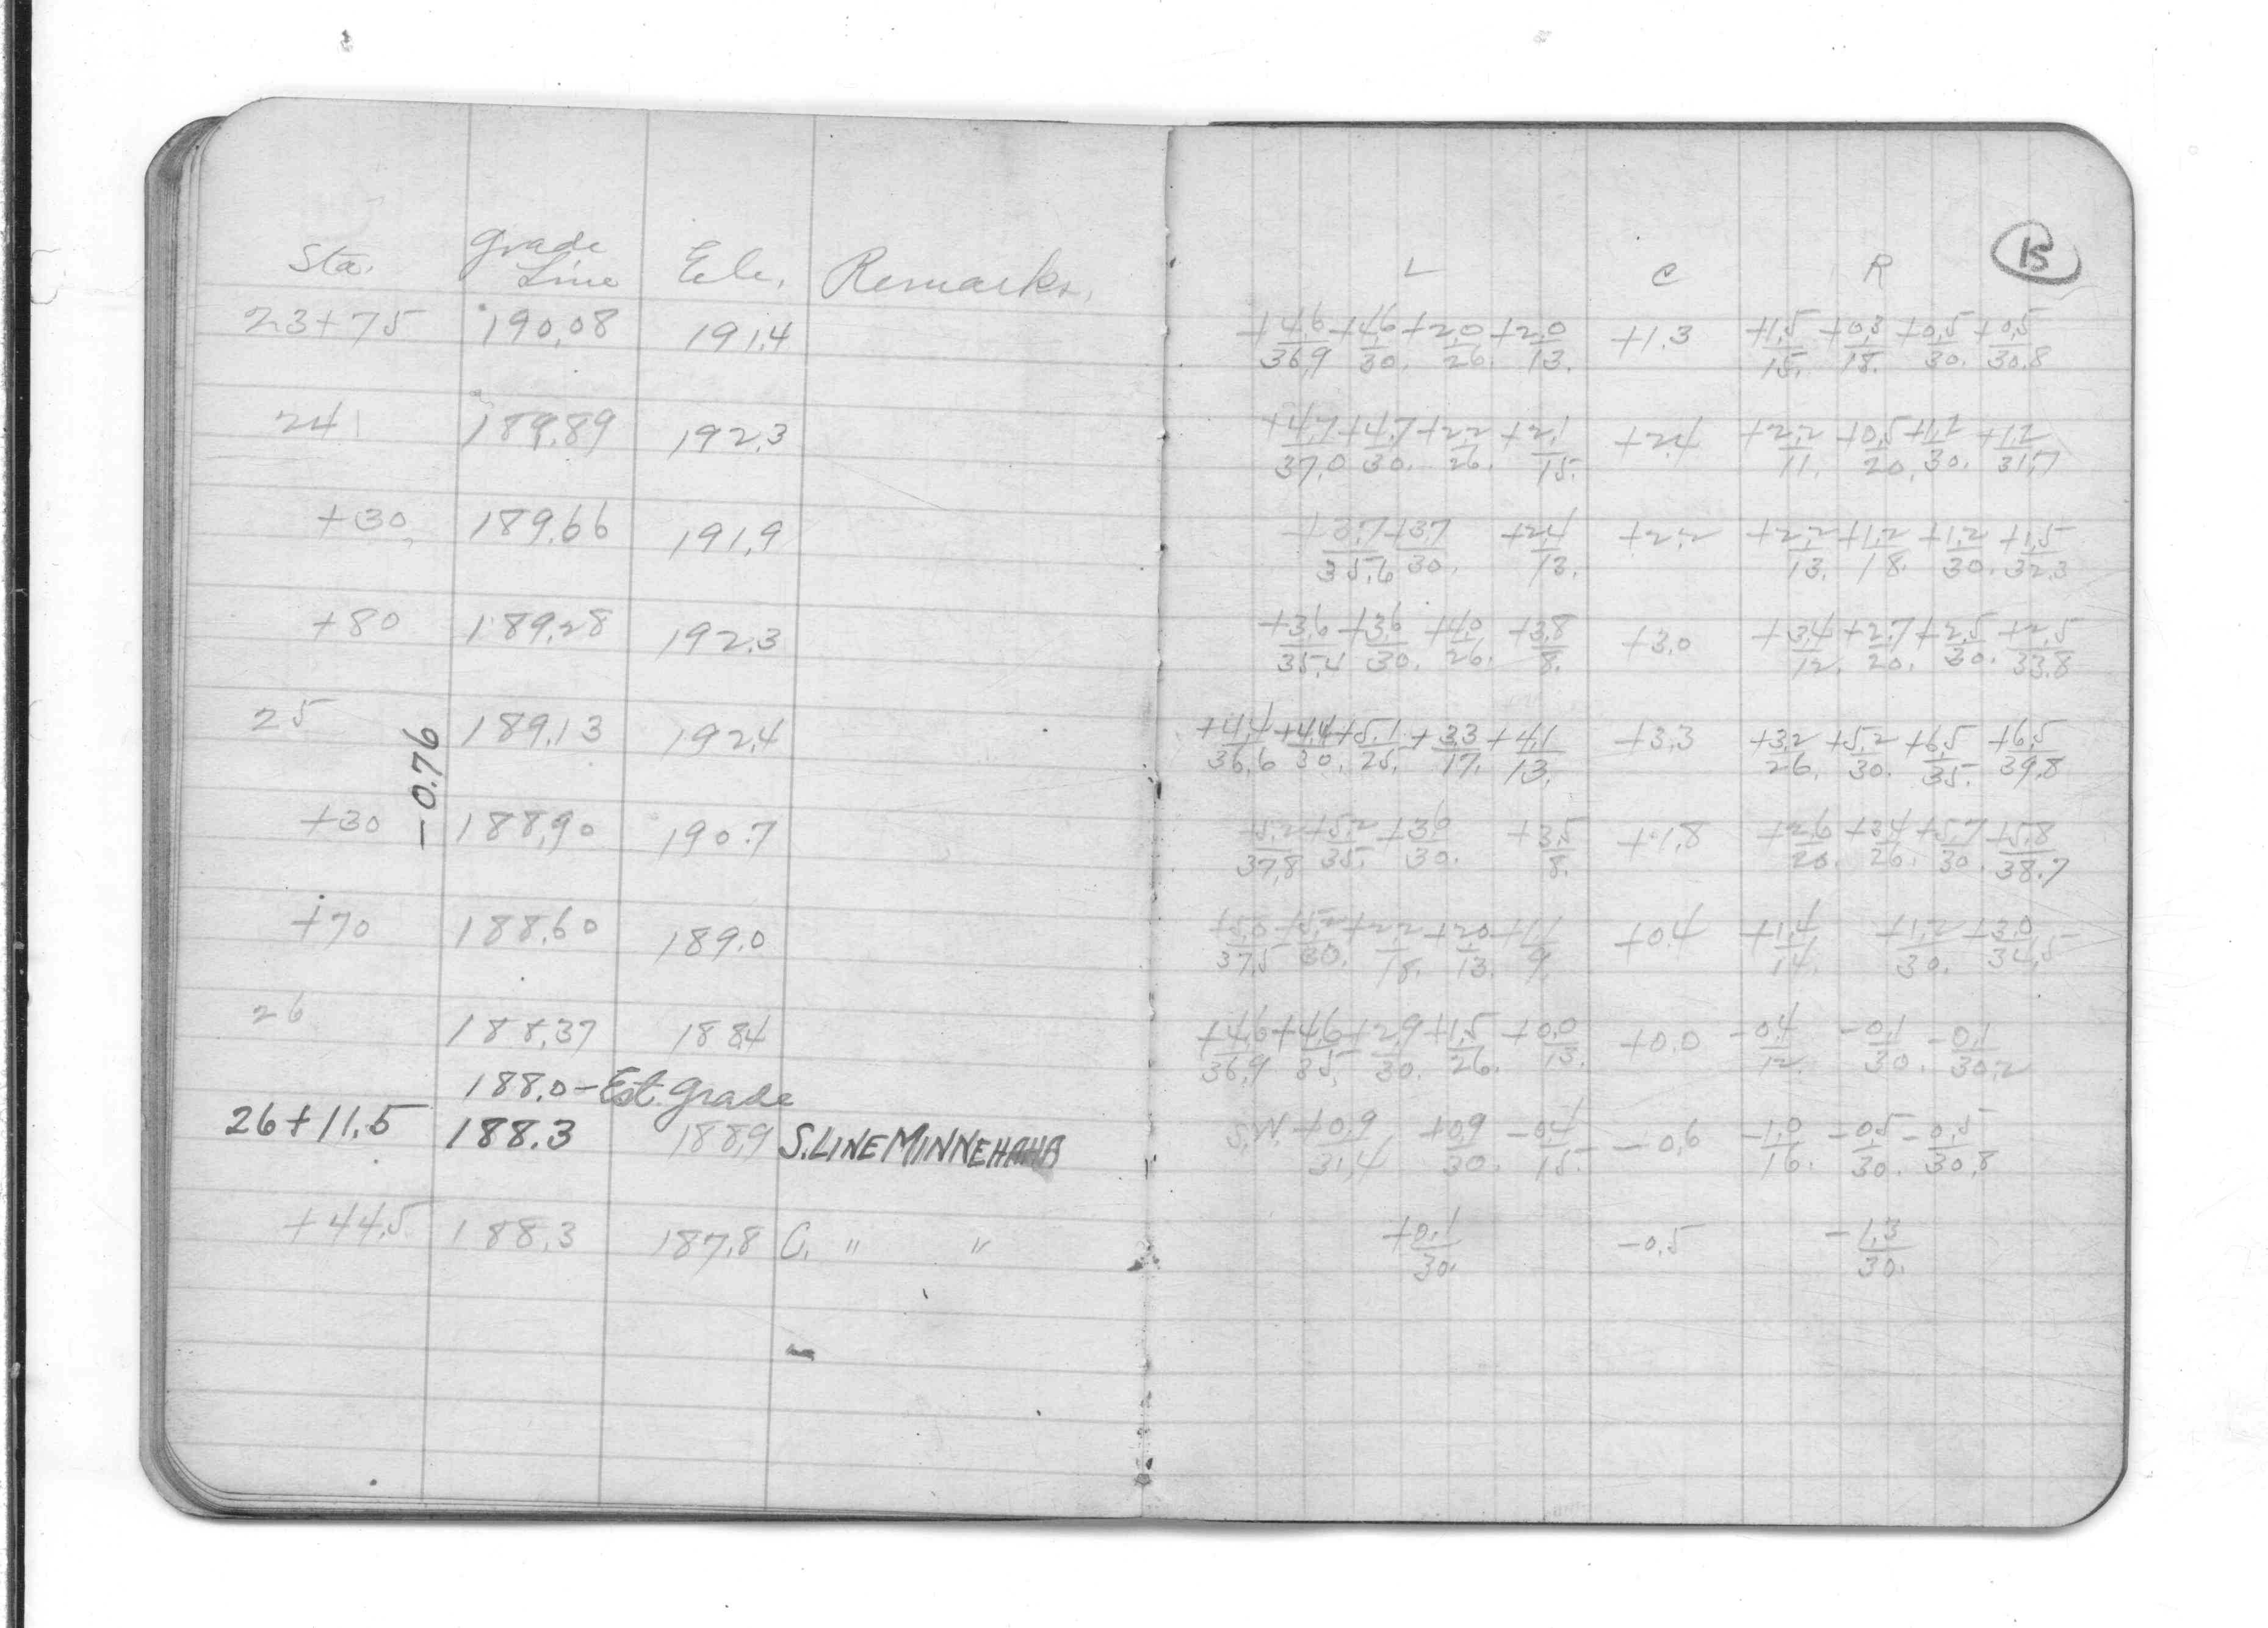 Sta. Grade Line Ele. Remarks. L C R 13
23+75 190.08 191.4 +4.6/36.9 +4.6/30. +2.0/26. +2.0/13. +1.3 +1.5/15. +0.3/18. +0.5/30. +0.5/30.8
24 189.89 192.3 +4.7/37.0 +4.7/30. +2.2/26. +2.1/15. +2.4 +2.2/11. +0.5/20. +1.2/30. +1.2/31.7
+30 189.66 191.9 +3.7/35.6 +3.7/30. +2.4/13. +2.2 +2.2/13. +1.2/18. +1.2/30. +1.5/32.3
+80 189.28 192.3 +3.6/35.4 +3.6/30. +4.0/26. +3.8/8. +3.0 +3.4/12. +2.7/20. +2.5/30. +2.5/33.8
25 189.13 192.4 +4.4/36.6 +4.4/30. +5.1/25. +3.3/17. +4.1/13. +3.3 +3.2/26. +5.2/30. +6.5/35. +6.5/39.8
-0.76
+30 188.90 190.7 +5.2/37.8 +5.2/35. +3.6/30. +3.5/8. +1.8 +2.6/20. +3.4/26. +5.7/30. +5.8/38.7
+70 188.60 189.0 +5.0/37.5 +5.2/30. +2.2/18. +2.0/13. +1.1/9. +0.4 +1.4/14. +1.2/30. +3.0/34.5
26 188.37 188.4 +4.6/36.9 +4.6/35. +2.9/30. +1.5/26. +0.0/13. +0.0 -0.4/12. -0.1/30. -0.1/30.2
188.0 - Est. Grade
26+11.5 188.3 188.9 S. LINE MINNEHAHA S.W. +0.9/31.4 +0.9/30. -0.4/15. -0.6 -1.0/16. -0.5/30. -0.5/30.8
+44.5 188.3 187.8 C. " " +0.1/30. -0.5 -1.3/30.